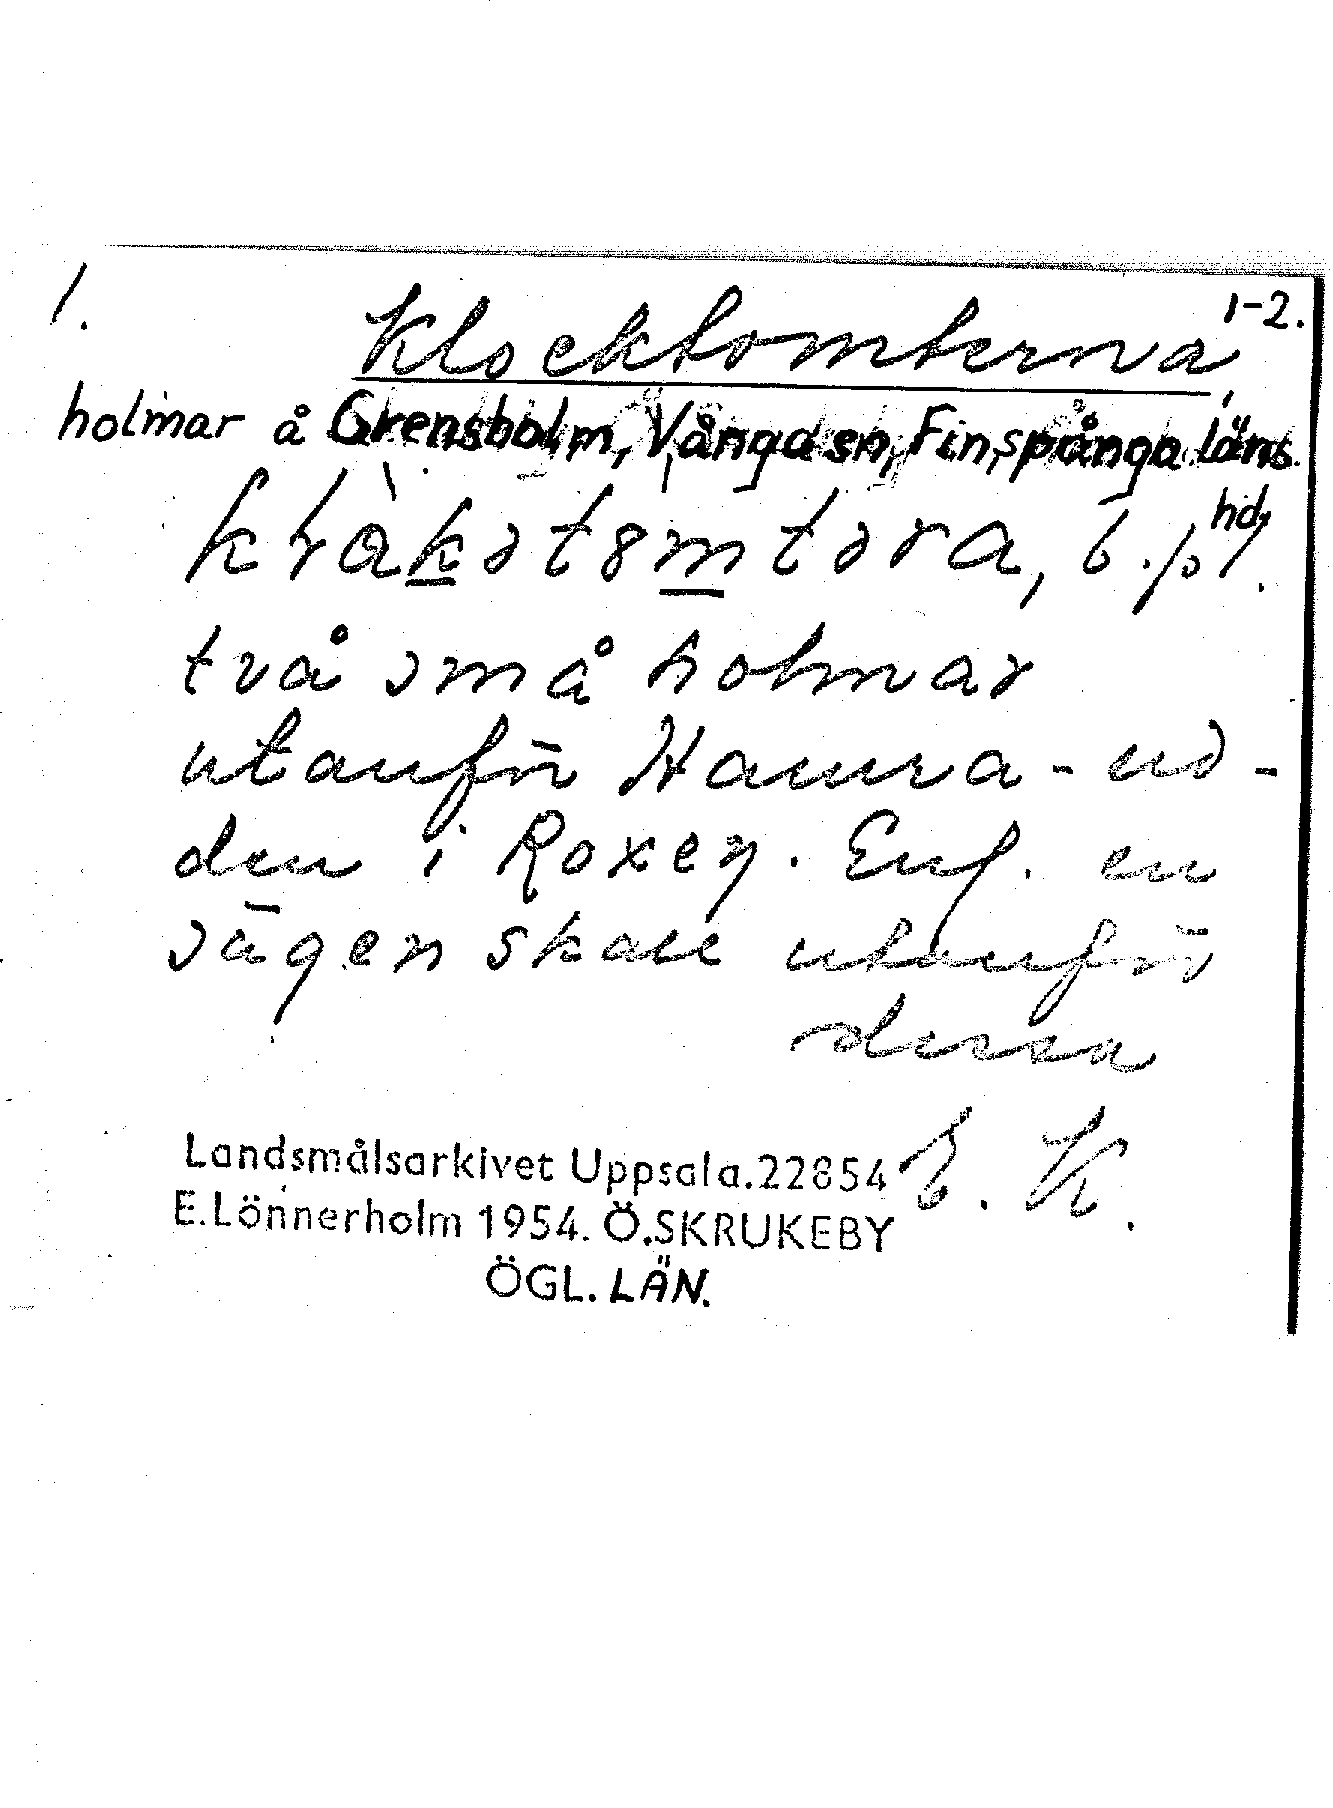 1. 1-2.
Klocktomterna,
holmar å Grensholm, Vånga sn, Finspånga läns
hd.
b. pl.
två små holmar
utanför Hamra-ud-
den i Roxen. Enl. en
sägen skall utanför
dessa
Landsmålsarkivet Uppsala. 22854 E. K.
E. Lönnerholm 1954. Ö. SKRUKEBY
ÖGL. LÄN.